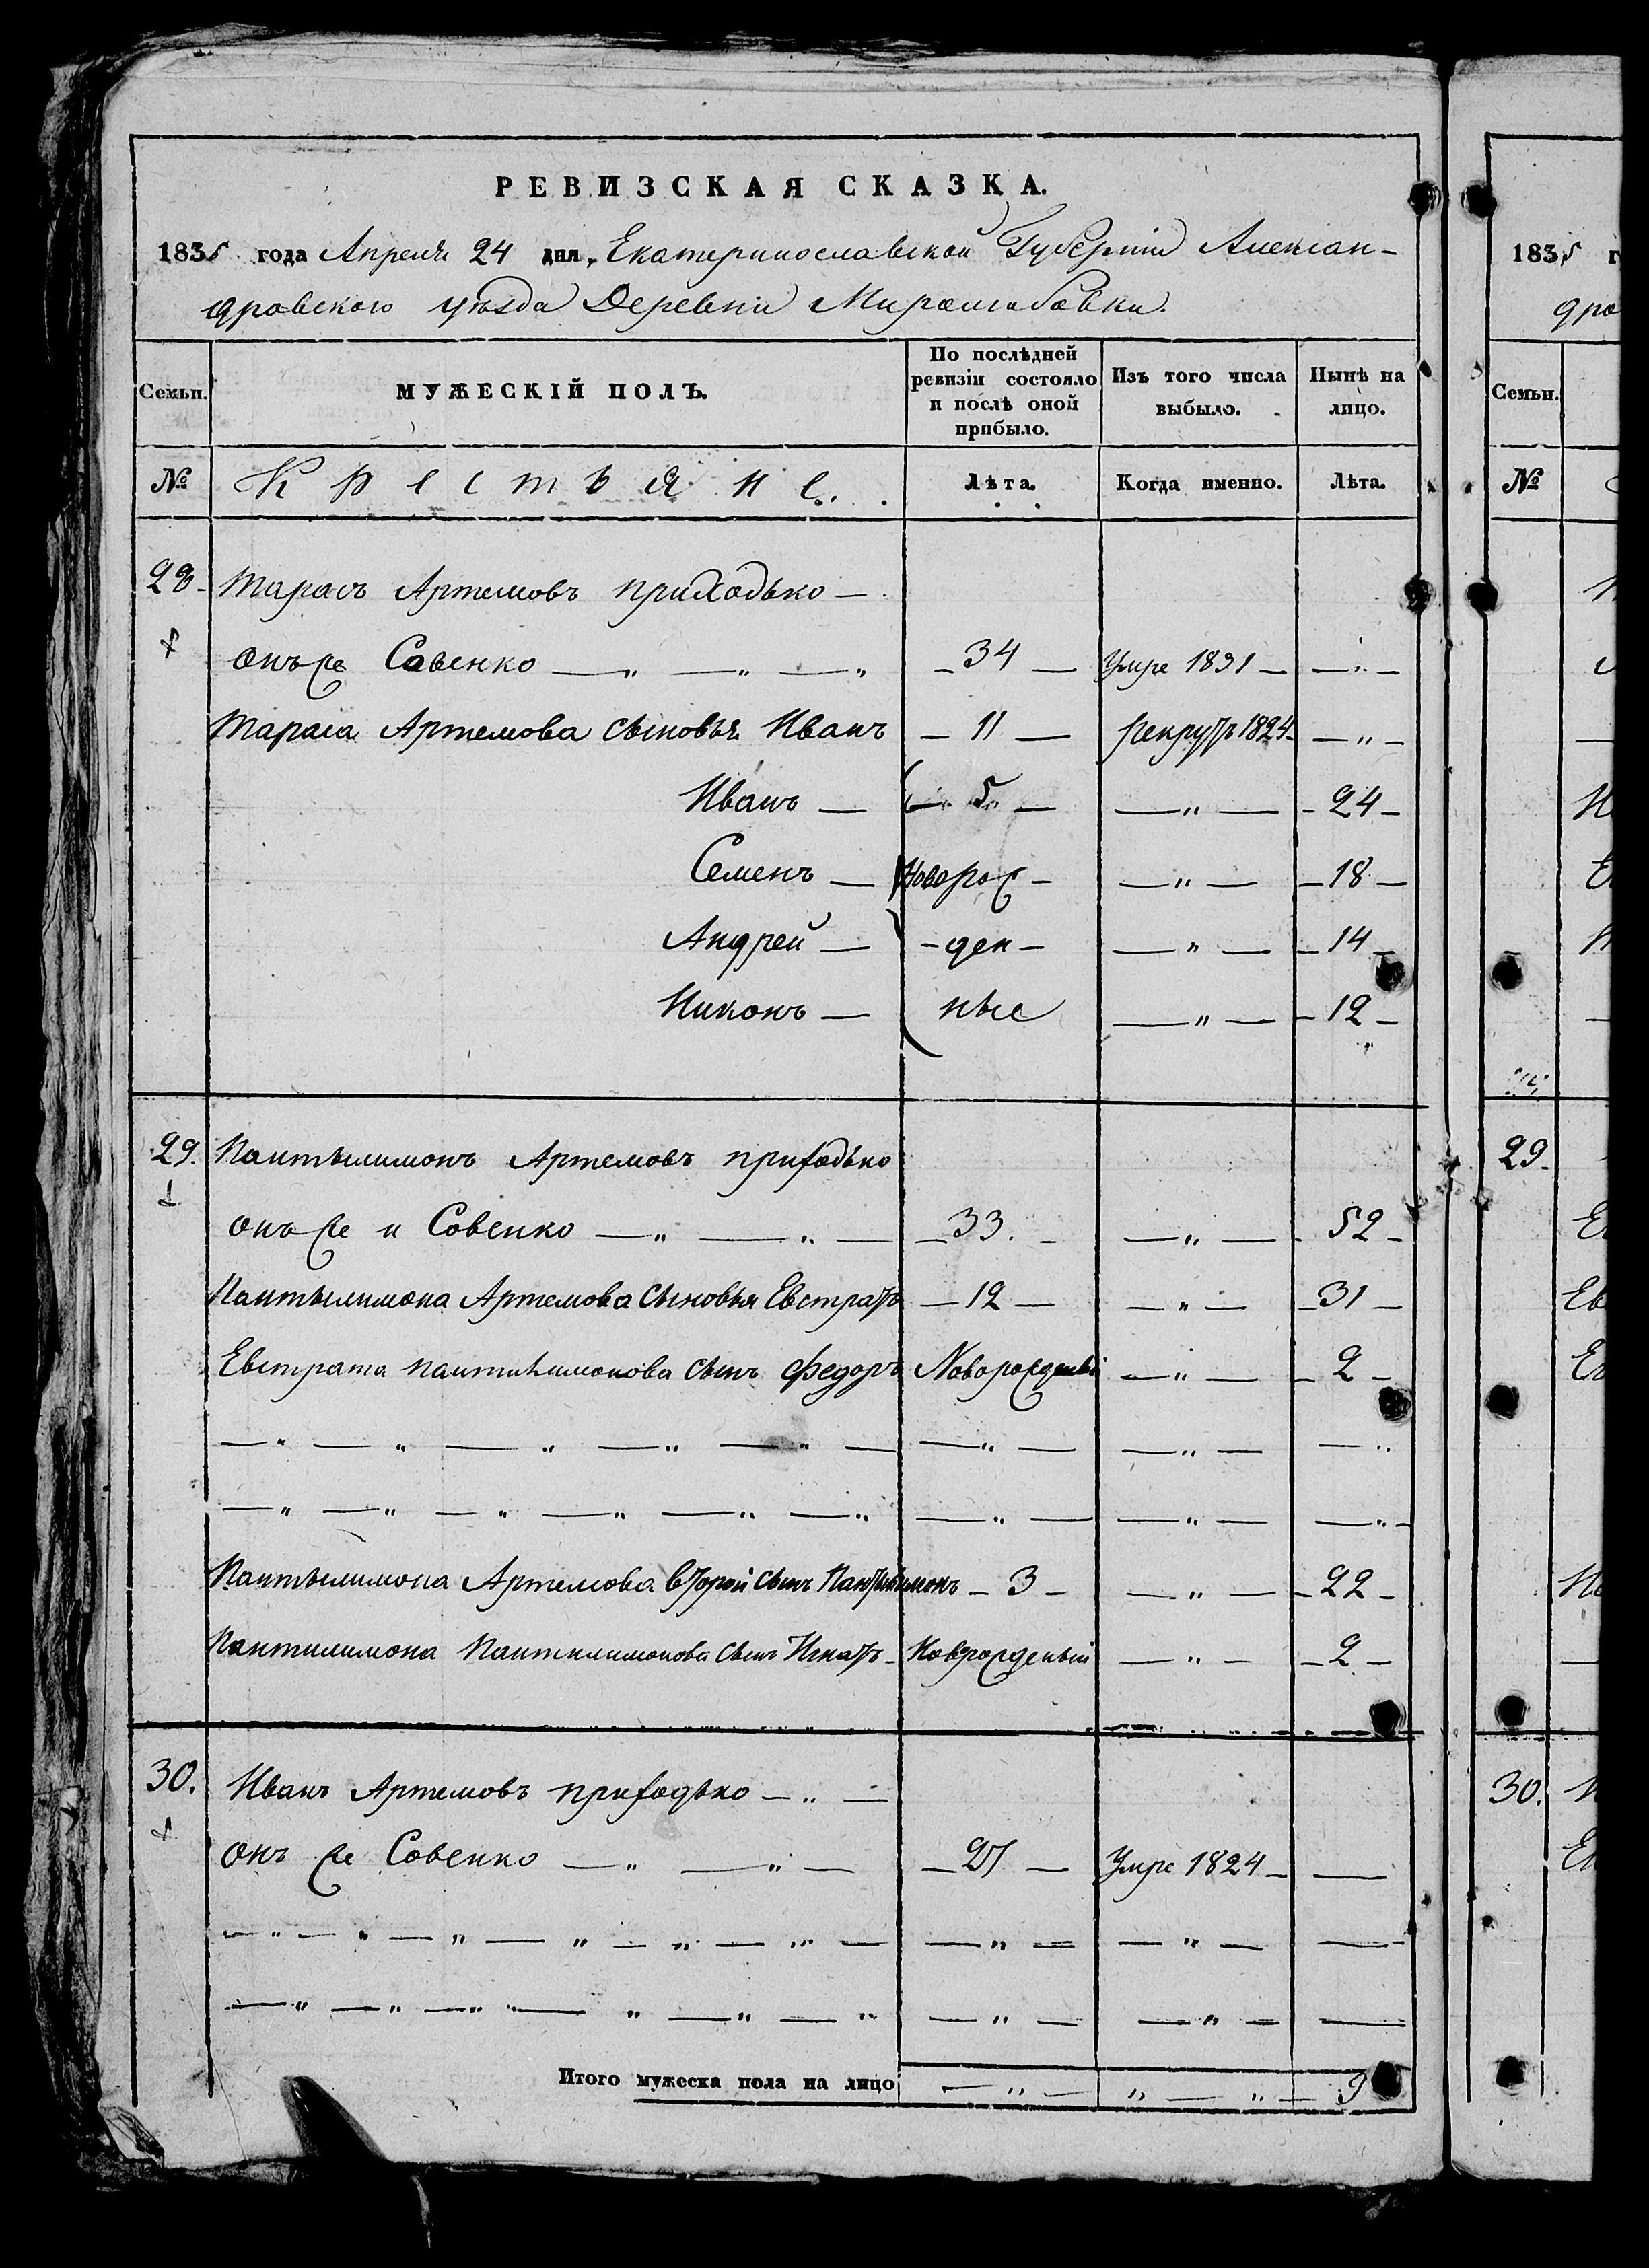 РЕВИЗСКАЯ СКАЗКА.
1835 года Апреля 24 дня, Екатеринославской Губерніи Алексан-
дровского уѣзда Деревни Миролюбовки.
Семьи. МУЖЕСКІЙ ПОЛЪ. По послѣдней ревизіи состояло и послѣ оной прибыло. Изъ того числа выбыло. Нынѣ на лицо.
№ Крестьяне. Лѣта. Когда именно. Лѣта.
28 Тарасъ Артемовъ Приходько —
онъ же Савенко — „ — „ — „ — 34 — Умре 1831 — — „ —
Тараса Артемова сыновья Иванъ — 11 — рекрутъ 1824 — — „ —
Иванъ — — 5 — — „ — — 24 —
Семенъ — Новорож — — „ — — 18 —
Андрей — — ден — — „ — — 14 —
Никонъ — ные — „ — — 12 —
29. Пантылимонъ Артемовъ Приходько
онъ же и Совенко — „ — „ — — 33. — — „ — 52 —
Пантылимона Артемова сыновья Евстратъ — 12 — — „ — — 31 —
Евстрата Пантилимонова сынъ Федоръ Новорожденый — „ — — 2 —
— „ — „ — „ — „ — „ — — „ — — „ — — „
— „ — „ — „ — „ — „ — „ — „ — — „ — — „ —
Пантылимона Артемова второй сынъ Пантилимонъ — 3 — — „ — — 22 —
Пантилимона Пантилимонова сынъ Игнатъ — Новорожденый — „ — — 2 —
30. Иванъ Артемовъ Приходько — „ —
онъ же Совенко — „ — „ — — 27 — Умре 1824 — —
— „ — „ — „ — „ — „ — „ — — „ — — „ — —
— „ — „ — „ — „ — „ — „ — „ — — „ — —
Итого мужеска пола на лицо — „ — „ — „ — 9
1835 г
дро
Семьи.
№
29.
30.